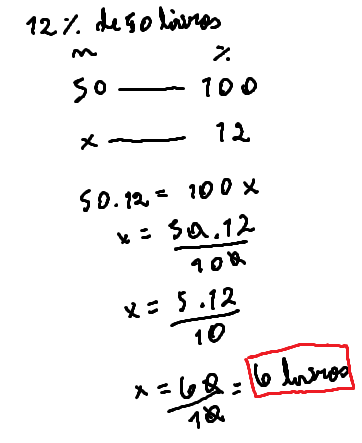 12 % de 50 livros
n %
50 — 100
x — 12
50.12 = 100 x
x = 50.12/100
x = 5.12/10
x = 60/10 = 6 livros